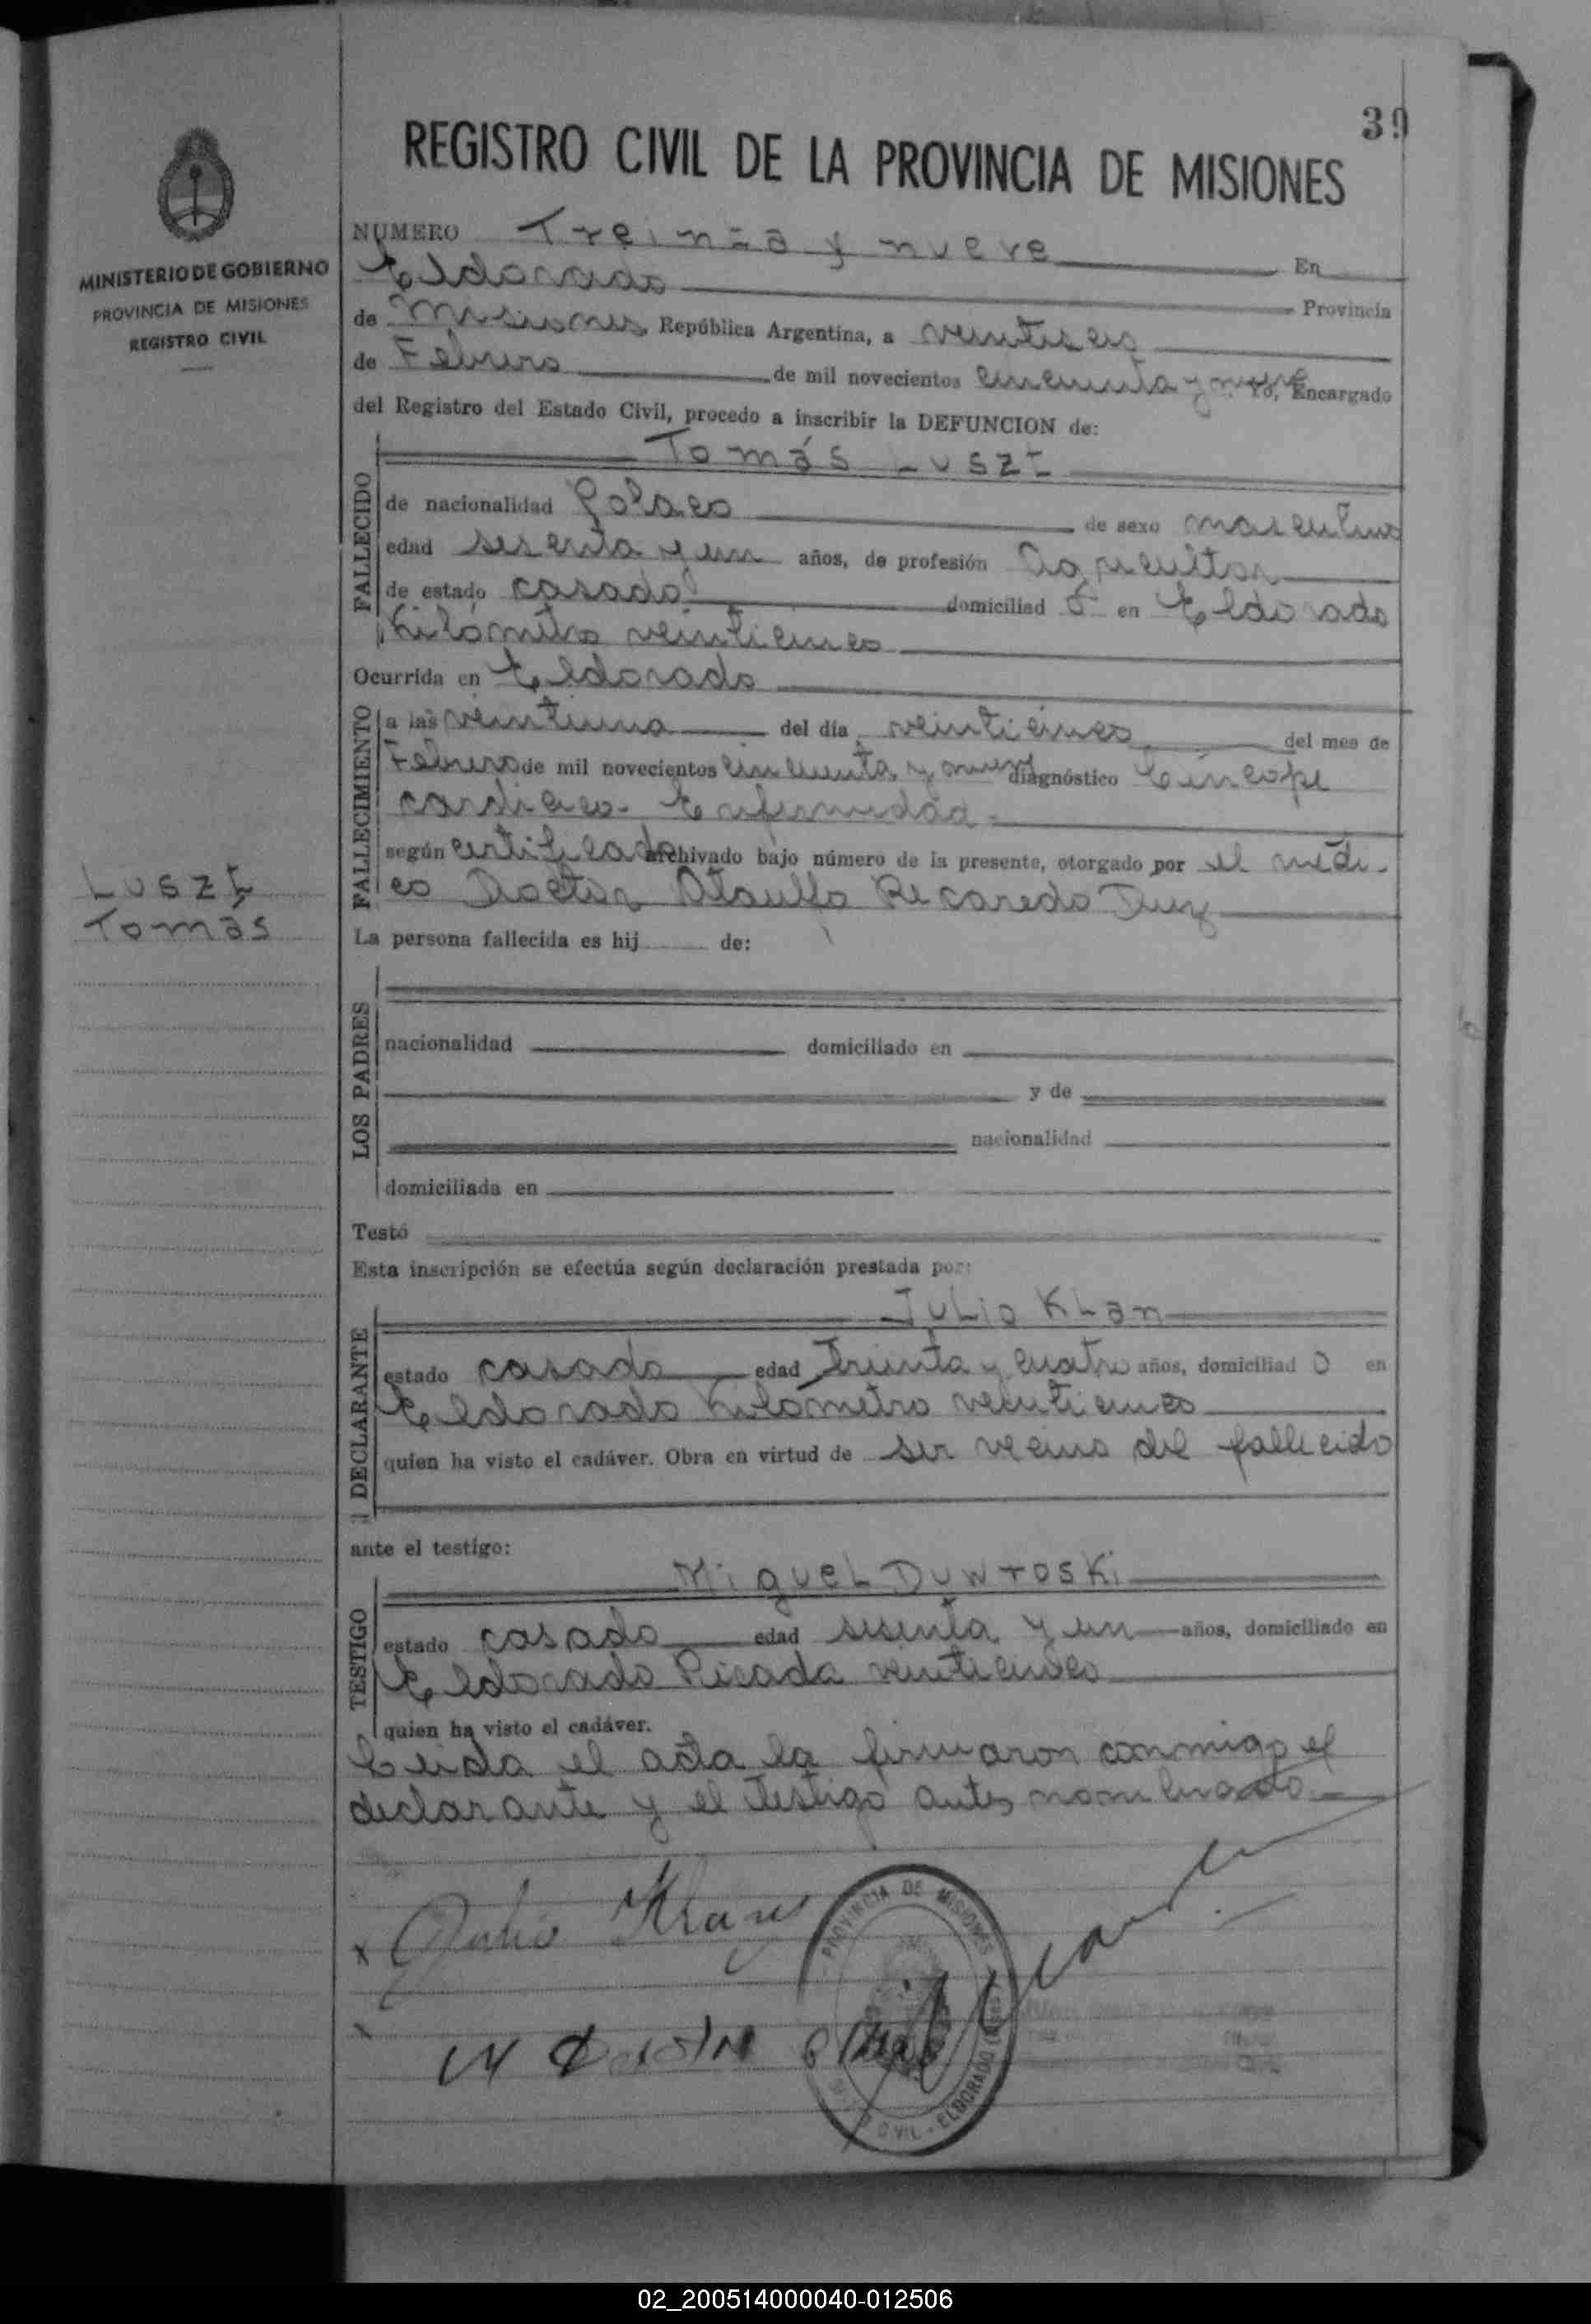 39
REGISTRO CIVIL DE LA PROVINCIA DE MISIONES
MINISTERIO DE GOBIERNO
PROVINCIA DE MISIONES
REGISTRO CIVIL
NUMERO Treinta y nueve En
Eldorado Provincia
de Misiones República Argentina, a veintiseis
de Febrero de mil novecientos cincuenta y nueve Yo, Encargado
del Registro del Estado Civil, procedo a inscribir la DEFUNCION de:
Tomás LUSZI
FALLECIDO
de nacionalidad Polaco de sexo masculino
edad sesenta y un años, de profesión Agricultor
de estado casado domiciliad o en Eldorado
kilómetro veinticinco
Ocurrida en Eldorado
FALLECIMIENTO
a las veintiuna del día veinticinco del mes de
Febrero de mil novecientos cincuenta y nueve diagnóstico Síncope
cardiaco. Enfermedad
según certificado archivado bajo número de la presente, otorgado por el médi-
co Doctor Ataulfo Recaredo
LUSZI
Tomás
La persona fallecida es hij de:
LOS PADRES
nacionalidad domiciliado en
y de
nacionalidad
domiciliada en
Testó
Esta inscripción se efectúa según declaración prestada por:
JULIO KLan
DECLARANTE
estado casado edad Treinta y cuatro años, domiciliad o en
Eldorado kilómetro veinticinco
quien ha visto el cadáver. Obra en virtud de ser vecino del fallecido
ante el testigo:
MigueL DUWTOSKi
TESTIGO
estado casado edad sesenta y un años, domiciliado en
Eldorado Picada veinticinco
quien ha visto el cadáver.
Leida el acta la firmaron conmigo el
declarante y el testigo antes nombrado
Julio
PROVINCIA DE MISIONES
CIVIL - ELDORADO
02_200514000040-012506